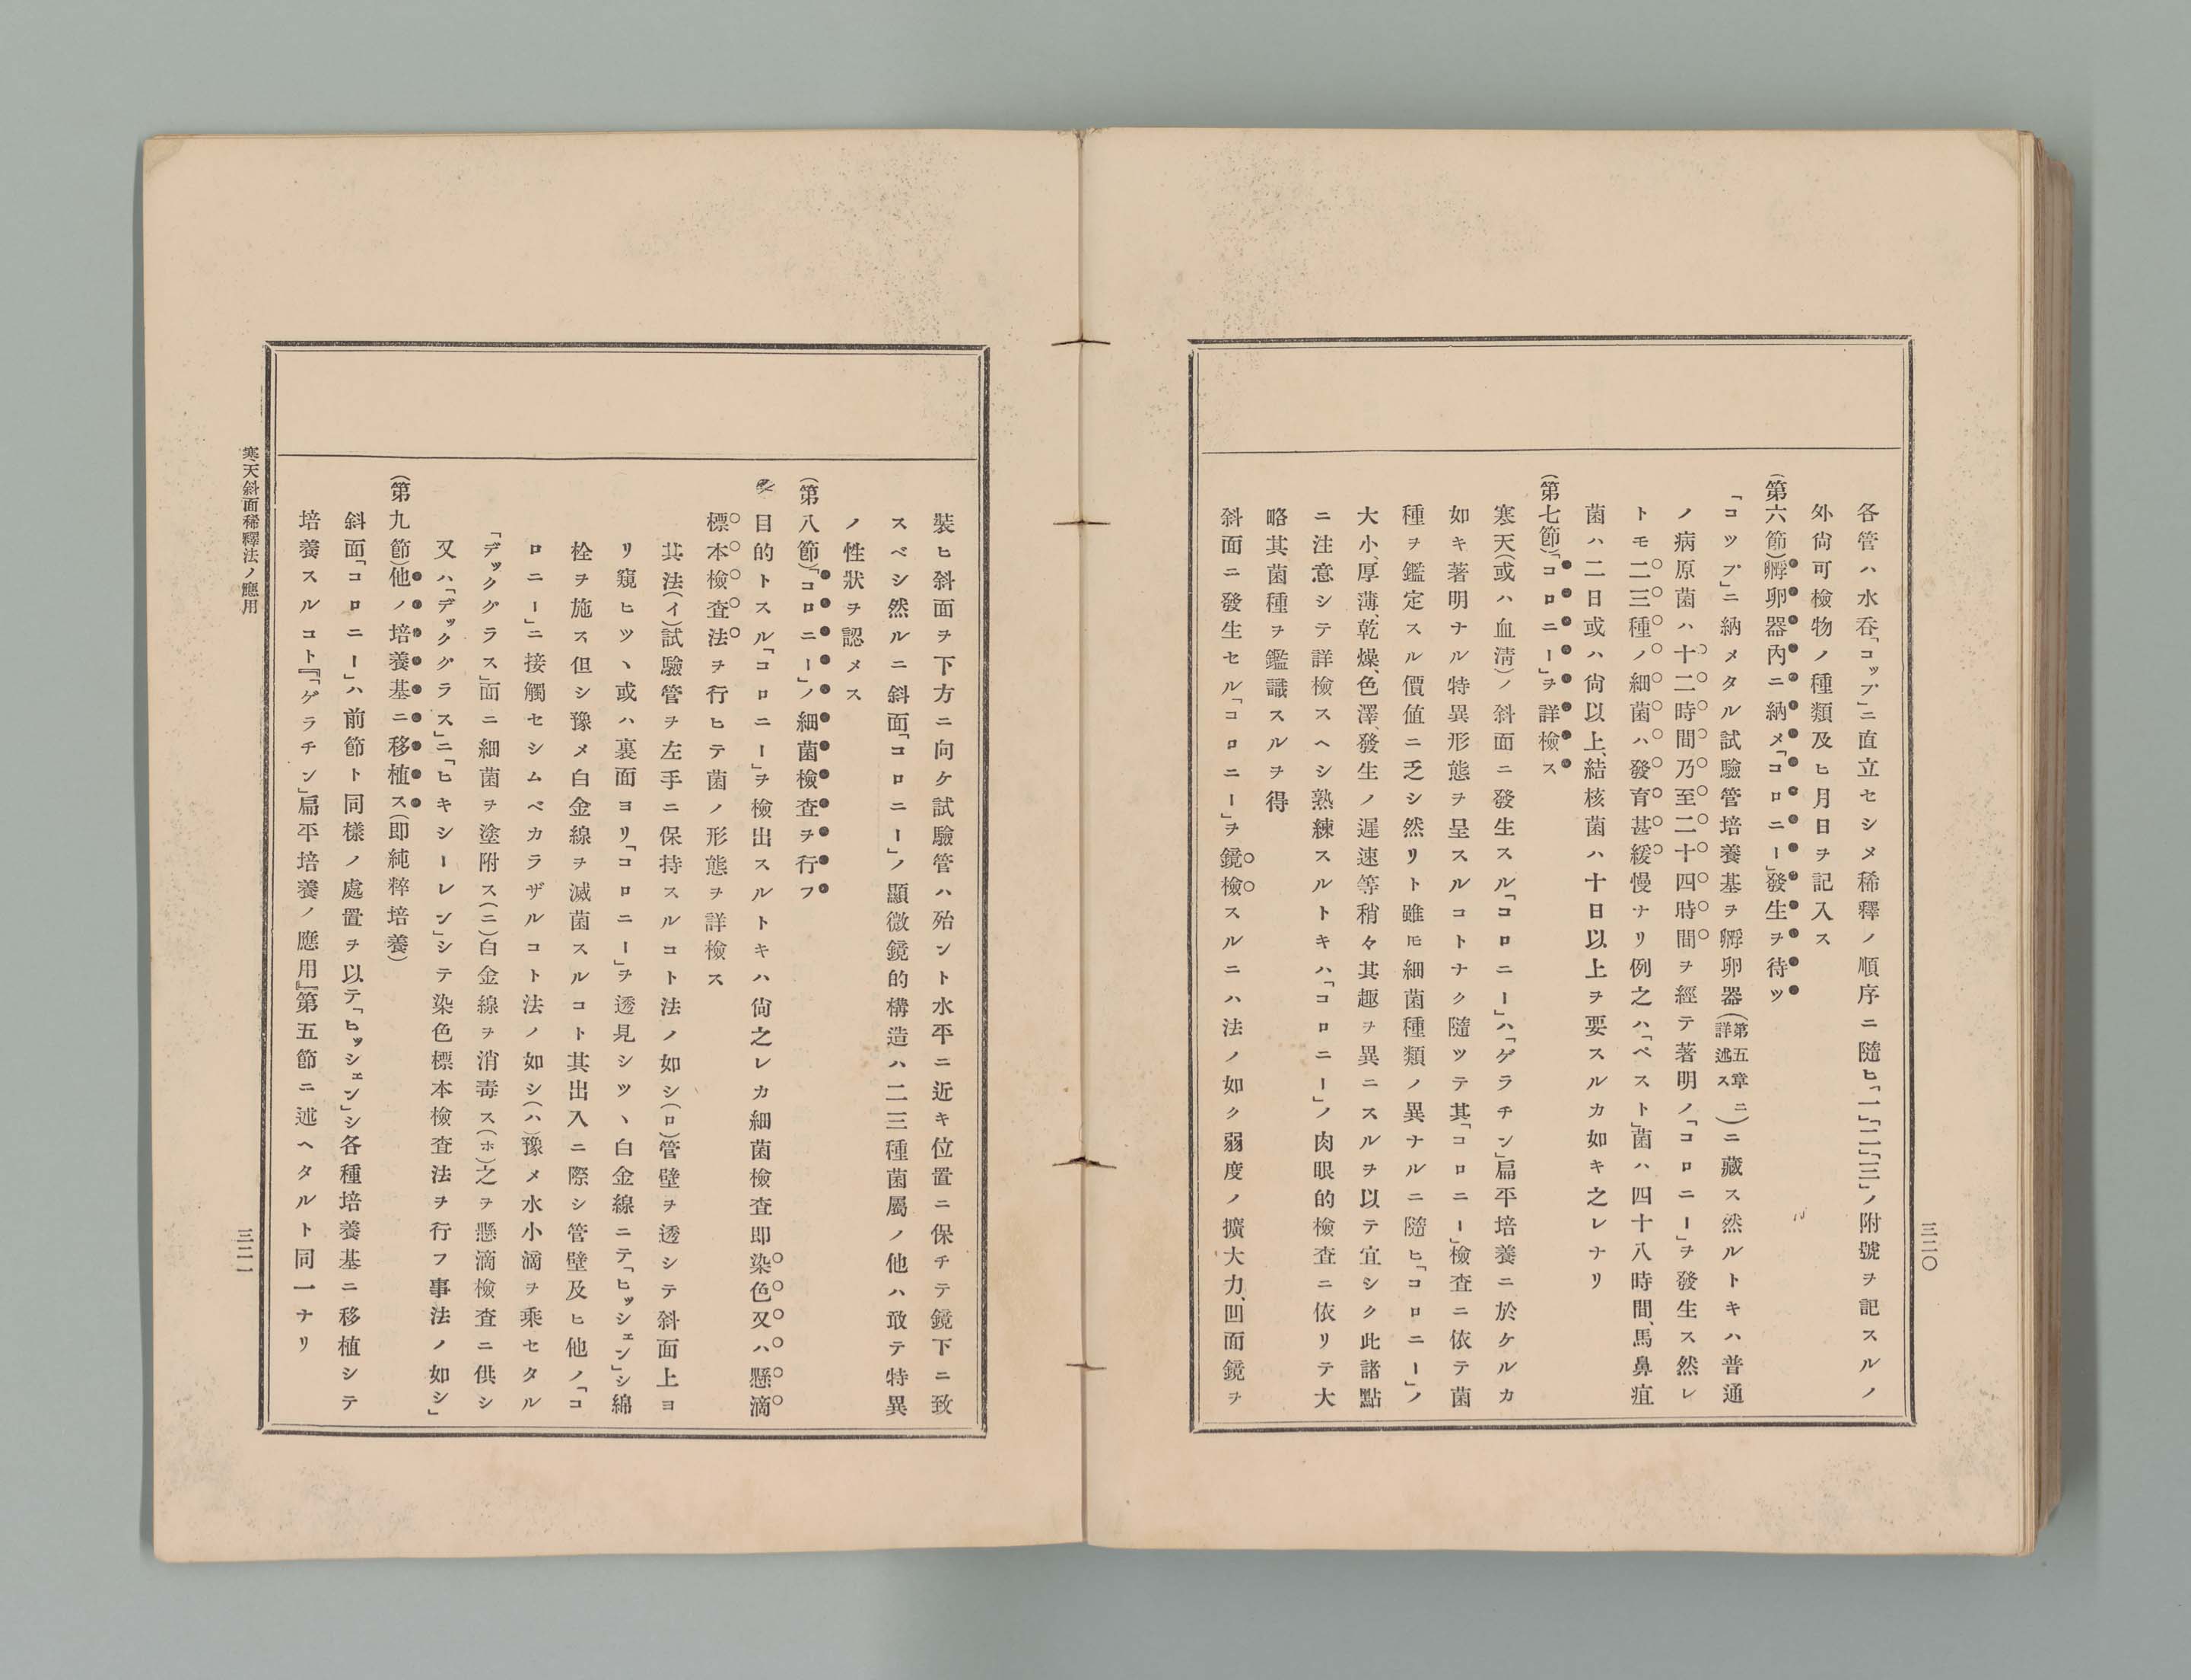 三二〇
各管ハ水呑「コップ」ニ直立セシメ稀釋ノ順序ニ隨ヒ「一」「二」「三」ノ附號ヲ記スルノ
外尙可檢物ノ種類及ヒ月日ヲ記入ス
(第六節)孵卵器內ニ納メ「コロニー」發生ヲ待ツ
「コップ」ニ納メタル試驗管培養基ヲ孵卵器(第五章ニ詳述ス)ニ藏ス然ルトキハ普通
ノ病原菌ハ十二時間乃至二十四時間ヲ經テ著明ノ「コロニー」ヲ發生ス然レ
トモ二三種ノ細菌ハ發育甚緩慢ナリ例之ハ「ペスト」菌ハ四十八時間、馬鼻疽
菌ハ二日或ハ尙以上、結核菌ハ十日以上ヲ要スルカ如キ之レナリ
(第七節)「コロニー」ヲ詳檢ス
寒天(或ハ血淸)ノ斜面ニ發生スル「コロニー」ハ「ゲラチン」扁平培養ニ於ケルカ
如キ著明ナル特異形態ヲ呈スルコトナク隨ツテ其「コロニー」檢査ニ依テ菌
種ヲ鑑定スル價値ニ乏シ然リト雖モ細菌種類ノ異ナルニ隨ヒ「コロニー」ノ
大小、厚薄、乾燥、色澤、發生ノ遲速等稍々其趣ヲ異ニスルヲ以テ宜シク此諸點
ニ注意シテ詳檢スヘシ熟練スルトキハ「コロニー」ノ肉眼的檢査ニ依リテ大
略其菌種ヲ鑑識スルヲ得
斜面ニ發生セル「コロニー」ヲ鏡檢スルニハ法ノ如ク弱度ノ擴大力、凹面鏡ヲ
裝ヒ斜面ヲ下方ニ向ケ試驗管ハ殆ント水平ニ近キ位置ニ保チテ鏡下ニ致
スベシ然ルニ斜面「コロニー」ノ顯微鏡的構造ハ二三種菌屬ノ他ハ敢テ特異
ノ性狀ヲ認メス
(第八節)「コロニー」ノ細菌檢査ヲ行フ
目的トスル「コロニー」ヲ檢出スルトキハ尙之レカ細菌檢査即染色又ハ懸滴
標本檢査法ヲ行ヒテ菌ノ形態ヲ詳檢ス
其法(イ)試驗管ヲ左手ニ保持スルコト法ノ如シ(ロ)管壁ヲ透シテ斜面上ヨ
リ窺ヒツヽ或ハ裏面ヨリ「コロニー」ヲ透見シツヽ白金線ニテ「ヒッシェン」シ綿
栓ヲ施ス但シ豫メ白金線ヲ滅菌スルコト其出入ニ際シ管壁及ヒ他ノ「コ
ロニー」ニ接觸セシムベカラザルコト法ノ如シ(ハ)豫メ水小滴ヲ乘セタル
「デックグラス」面ニ細菌ヲ塗附ス(ニ)白金線ヲ消毒ス(ホ)之ヲ懸滴檢査ニ供シ
又ハ「デックグラス」ニ「ヒキシーレン」シテ染色標本檢査法ヲ行フ事法ノ如シ」
(第九節)他ノ培養基ニ移植ス(即純粹培養)
斜面「コロニー」ハ前節ト同樣ノ處置ヲ以テ「ヒッシェン」シ各種培養基ニ移植シテ
培養スルコト『「ゲラチン」扁平培養ノ應用』第五節ニ述ヘタルト同一ナリ
寒天斜面稀釋法ノ應用
三二一